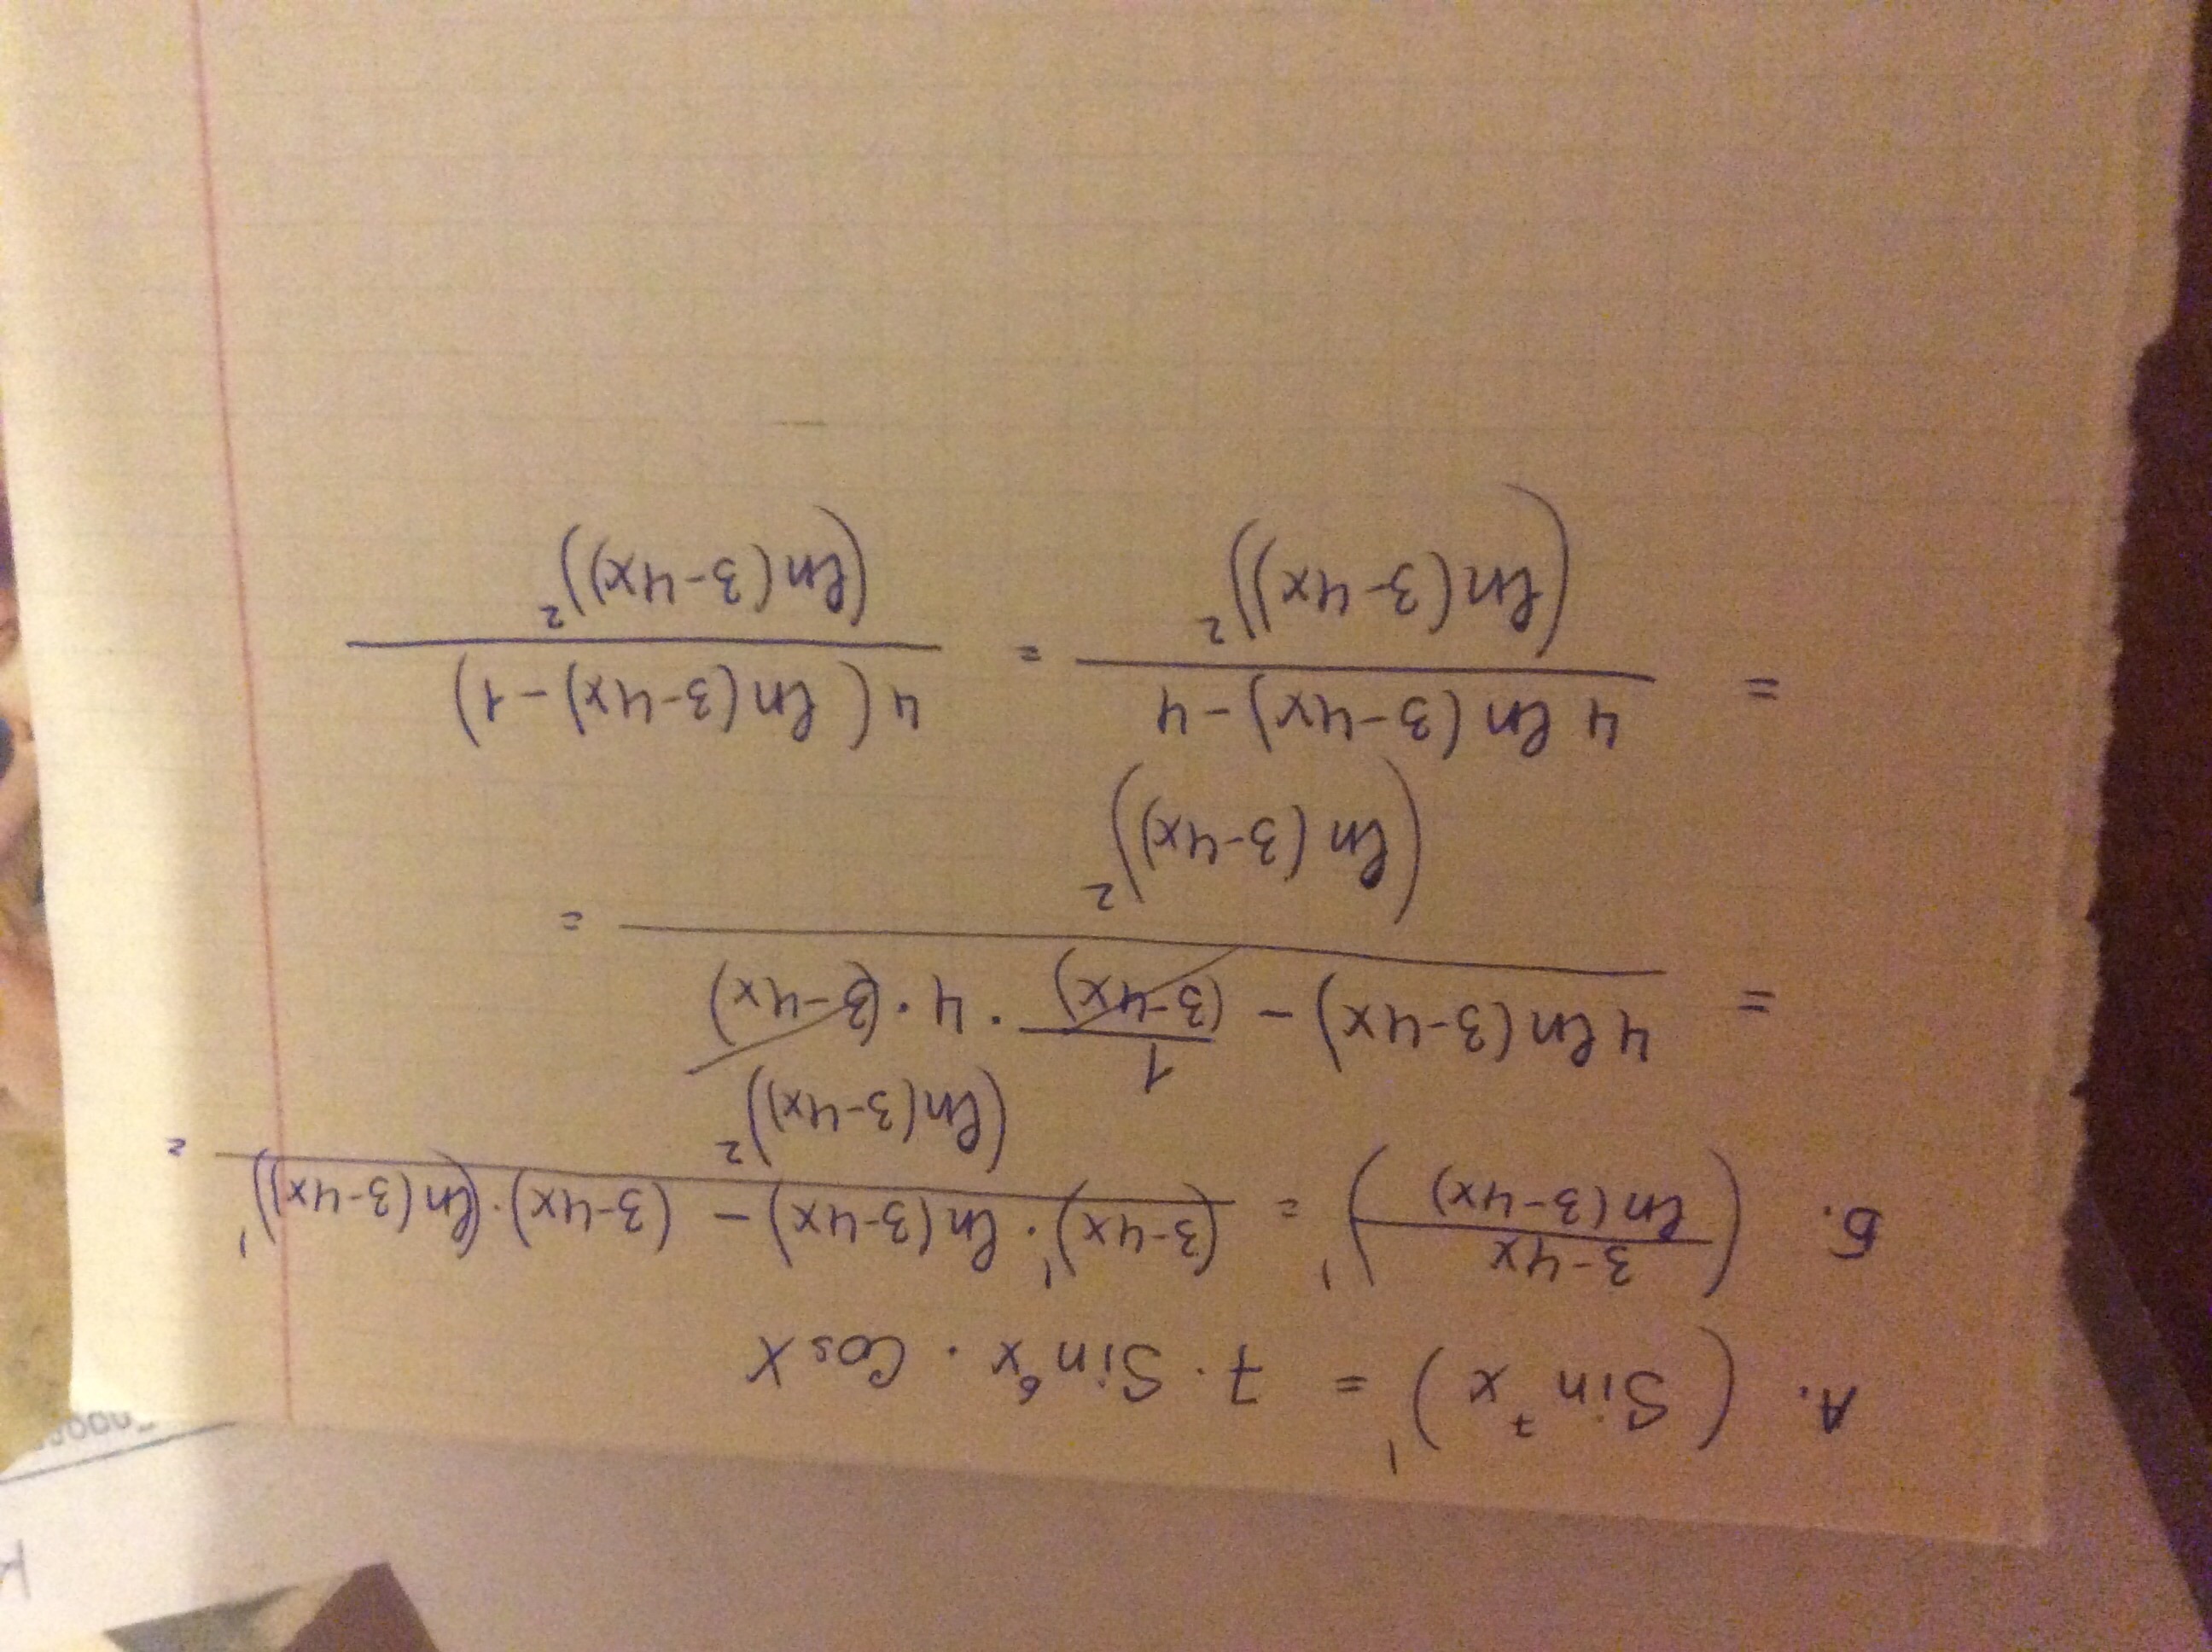 А. (Sin⁷x)' = 7 · Sin⁶x · Cos x
Б. ((3-4x)/(ln(3-4x)))' = ((3-4x)' · ln(3-4x) - (3-4x) · (ln(3-4x))')/((ln(3-4x))²) =
= (4 ln(3-4x) - 1/(3-4x) · 4 · (3-4x))/((ln(3-4x))²) =
= (4 ln(3-4x) - 4)/((ln(3-4x))²) = (4(ln(3-4x) - 1))/((ln(3-4x))²)